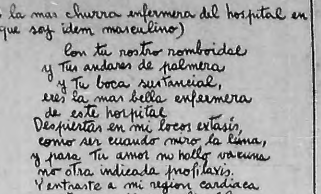 la mas churra enfermera del hospital en
que soy idem masculino)
Con tu rostro romboidal
y Tus andares de palmera
y Tu boca sustancial,
eres la mas bella enfermera
de este hospital
Despiertas en mi locos extasis,
como ser cuando miro la luna,
y para Tu amor no hallo vacuna
no otra indicada profilaxis.
Y entraste a mi region cardiaca